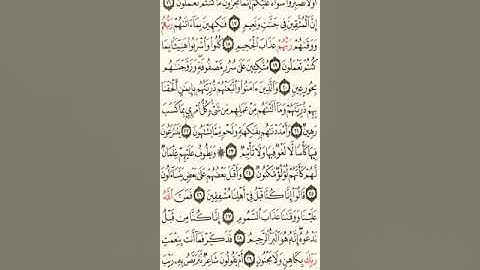 أَوْ لَا تَصْبِرُوا۟ سَوَآءٌ عَلَيْكُمْ إِنَّمَا تُجْزَوْنَ مَا كُنتُمْ تَعْمَلُونَ ١٦
إِنَّ ٱلْمُتَّقِينَ فِى جَنَّٰتٍ وَنَعِيمٍ ١٧ فَٰكِهِينَ بِمَآ ءَاتَىٰهُمْ رَبُّهُمْ
وَوَقَىٰهُمْ رَبُّهُمْ عَذَابَ ٱلْجَحِيمِ ١٨ كُلُوا۟ وَٱشْرَبُوا۟ هَنِيٓـًٔۢا بِمَا
كُنتُمْ تَعْمَلُونَ ١٩ مُتَّكِـِٔينَ عَلَىٰ سُرُرٍ مَّصْفُوفَةٍ وَزَوَّجْنَٰهُم
بِحُورٍ عِينٍ ٢٠ وَٱلَّذِينَ ءَامَنُوا۟ وَٱتَّبَعَتْهُمْ ذُرِّيَّتُهُم بِإِيمَٰنٍ أَلْحَقْنَا
بِهِمْ ذُرِّيَّتَهُمْ وَمَآ أَلَتْنَٰهُم مِّنْ عَمَلِهِم مِّن شَىْءٍ كُلُّ ٱمْرِئٍۭ بِمَا كَسَبَ
رَهِينٌ ٢١ وَأَمْدَدْنَٰهُم بِفَٰكِهَةٍ وَلَحْمٍ مِّمَّا يَشْتَهُونَ ٢٢ يَتَنَٰزَعُونَ
فِيهَا كَأْسًا لَّا لَغْوٌ فِيهَا وَلَا تَأْثِيمٌ ٢٣ ۞ وَيَطُوفُ عَلَيْهِمْ غِلْمَانٌ
لَّهُمْ كَأَنَّهُمْ لُؤْلُؤٌ مَّكْنُونٌ ٢٤ وَأَقْبَلَ بَعْضُهُمْ عَلَىٰ بَعْضٍ يَتَسَآءَلُونَ
٢٥ قَالُوٓا۟ إِنَّا كُنَّا قَبْلُ فِىٓ أَهْلِنَا مُشْفِقِينَ ٢٦ فَمَنَّ ٱللَّهُ
عَلَيْنَا وَوَقَىٰنَا عَذَابَ ٱلسَّمُومِ ٢٧ إِنَّا كُنَّا مِن قَبْلُ
نَدْعُوهُ إِنَّهُۥ هُوَ ٱلْبَرُّ ٱلرَّحِيمُ ٢٨ فَذَكِّرْ فَمَآ أَنتَ بِنِعْمَتِ
رَبِّكَ بِكَاهِنٍ وَلَا مَجْنُونٍ ٢٩ أَمْ يَقُولُونَ شَاعِرٌ نَّتَرَبَّصُ بِهِۦ رَيْبَ